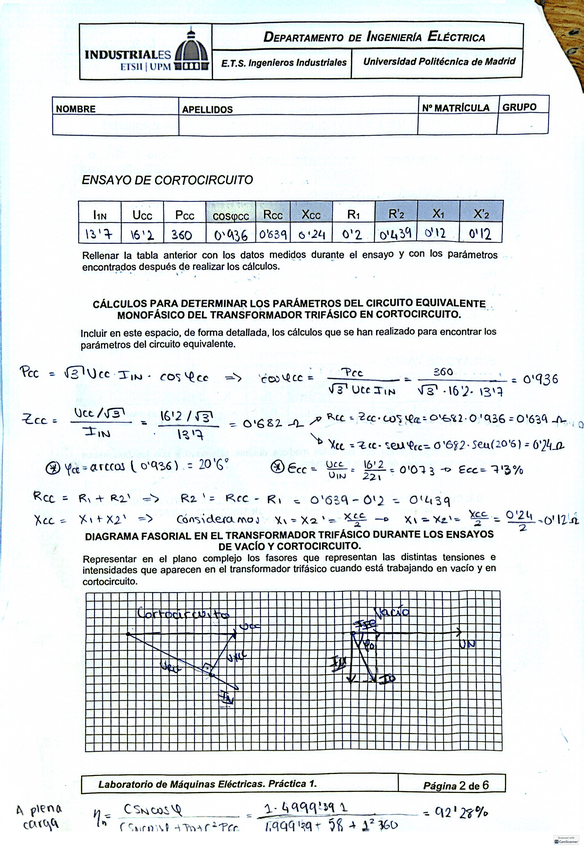 INDUSTRIALES
ETSII | UPM
DEPARTAMENTO DE INGENIERÍA ELÉCTRICA
E.T.S. Ingenieros Industriales
Universidad Politécnica de Madrid
NOMBRE APELLIDOS Nº MATRÍCULA GRUPO
ENSAYO DE CORTOCIRCUITO
I1N Ucc Pcc cosφcc Rcc Xcc R1 R'2 X1 X'2
13'7 16'2 360 0'936 0'639 0'24 0'2 0'439 0'12 0'12
Rellenar la tabla anterior con los datos medidos durante el ensayo y con los parámetros
encontrados después de realizar los cálculos.
CÁLCULOS PARA DETERMINAR LOS PARÁMETROS DEL CIRCUITO EQUIVALENTE
MONOFÁSICO DEL TRANSFORMADOR TRIFÁSICO EN CORTOCIRCUITO.
Incluir en este espacio, de forma detallada, los cálculos que se han realizado para encontrar los
parámetros del circuito equivalente.
Pcc = √3 Ucc · I1N · cosφcc => cosφcc = Pcc / √3 Ucc I1N = 360 / √3 · 16'2 · 13'7 = 0'936
Zcc = Ucc/√3 / I1N = 16'2/√3 / 13'7 = 0'682 Ω → Rcc = Zcc · cosφcc = 0'682 · 0'936 = 0'639 Ω
→ Xcc = Zcc · senφcc = 0'682 · sen(20'6) = 0'24 Ω
* φcc = arccos (0'936) = 20'6° * Ecc = Ucc / U1N = 16'2 / 221 = 0'073 → Ecc = 7'3%
Rcc = R1 + R2' => R2' = Rcc - R1 = 0'639 - 0'2 = 0'439
Xcc = X1 + X2' => Consideramos X1 = X2' = Xcc / 2 → X1 = X2' = Xcc / 2 = 0'24 / 2 = 0'12 Ω
DIAGRAMA FASORIAL EN EL TRANSFORMADOR TRIFÁSICO DURANTE LOS ENSAYOS
DE VACÍO Y CORTOCIRCUITO.
Representar en el plano complejo los fasores que representan las distintas tensiones e
intensidades que aparecen en el transformador trifásico cuando está trabajando en vacío y en
cortocircuito.
Cortocircuito Vacío
Ucc
UN
φ0
URcc UXcc
Iμ I0
IN
Laboratorio de Máquinas Eléctricas. Práctica 1. Página 2 de 6
A plena
carga
η = C SN cosφ / C SN cosφ + P0 + C² Pcc = 1 · 4999'39 · 1 / 4999'39 + 58 + 1² 360 = 92'28%
CamScanner